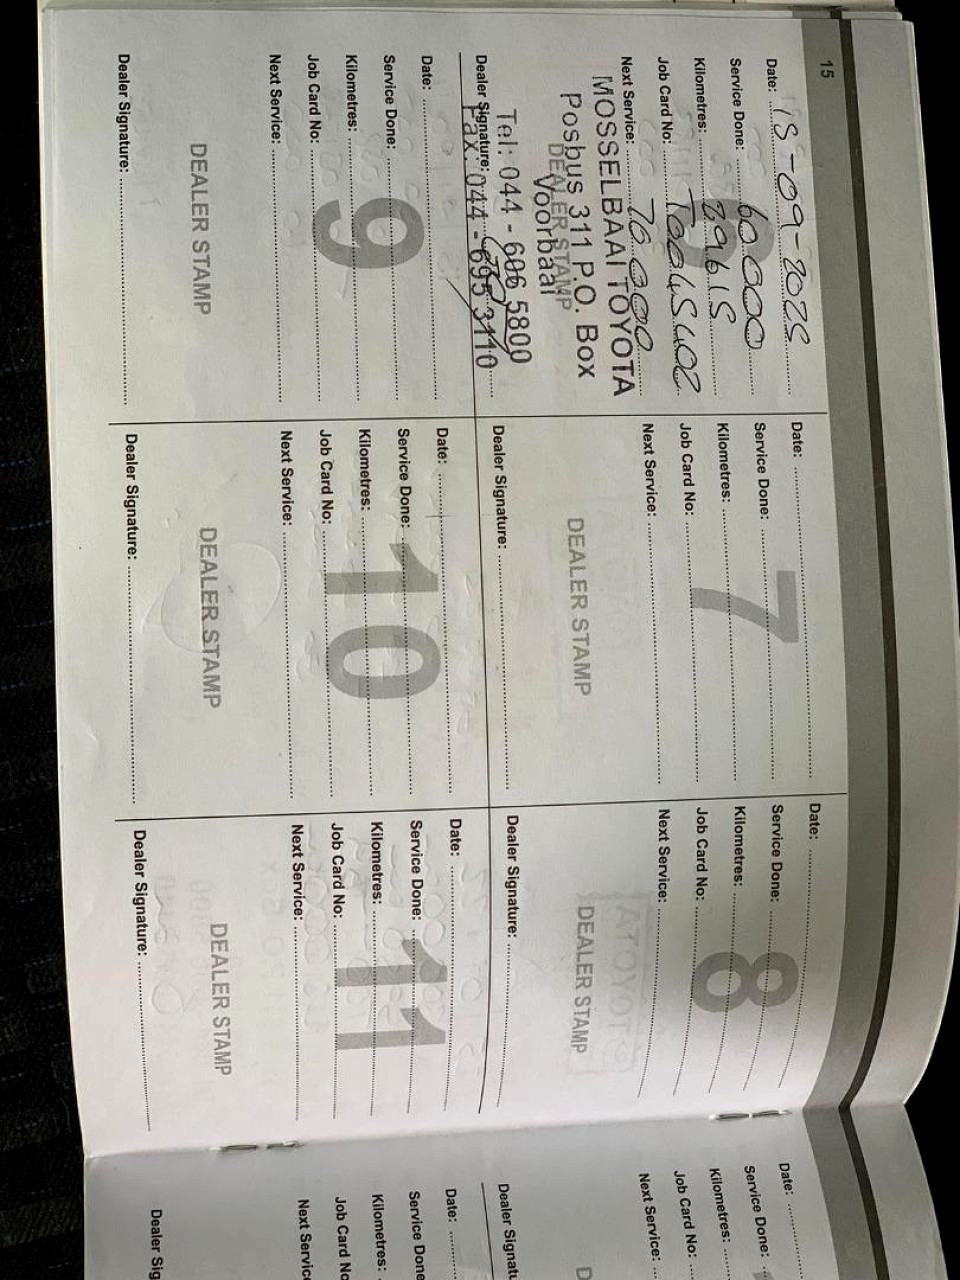 15
Date: 15-09-2025
Service Done: 60000
Kilometres:
Job Card No:
Next Service: 70 000
MOSSELBAAI TOYOTA
Posbus 311 P.O. Box
DEALER STAMP
Voorbaai
Tel: 044 - 606 5800
Dealer Signature:
Fax: 044 - 695 3110
Date:
Service Done:
Kilometres:
Job Card No:
Next Service:
7
DEALER STAMP
Dealer Signature:
Date:
Service Done:
Kilometres:
Job Card No:
Next Service:
8
DEALER STAMP
Dealer Signature:
Date:
Service Done:
Kilometres:
Job Card No:
Next Service:
9
DEALER STAMP
Dealer Signature:
Date:
Service Done:
Kilometres:
Job Card No:
Next Service:
10
DEALER STAMP
Dealer Signature:
Date:
Service Done:
Kilometres:
Job Card No:
Next Service:
11
DEALER STAMP
Dealer Signature:
Date:
Service Done:
Kilometres:
Job Card No:
Next Service:
D
Dealer Signatu
Date:
Service Done
Kilometres:
Job Card No
Next Servic
Dealer Sig